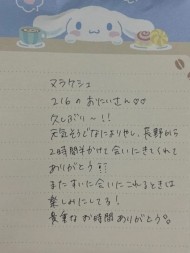 マラケシュ
216のおにいさん♡♡
久しぶり〜!!
元気そうでなによりやし、長野から
2時間半かけて会いにきてくれて
ありがとう!!!
またすぐに会いにこれるときは
楽しみにしてる!
貴重なお時間ありがとう。